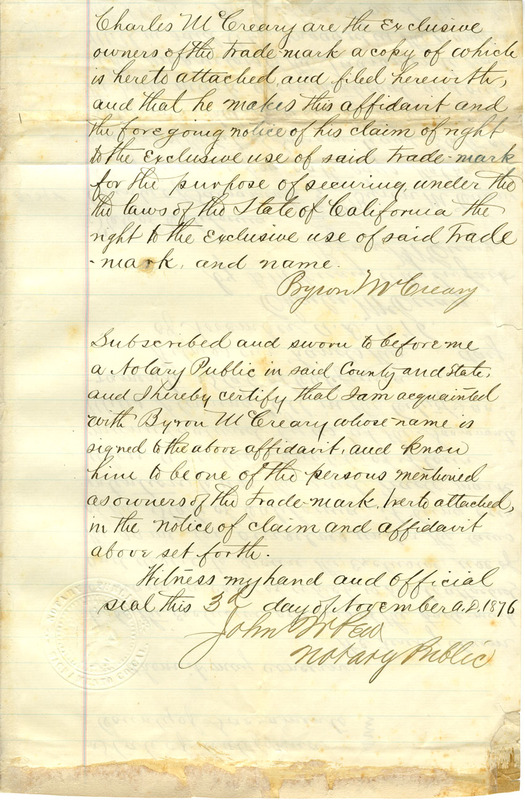 Charles McCreary are the Exclusive
owners of the trade mark a copy of which
is hereto attached and filed herewith,
and that he makes this affidavit and
the foregoing notice of his claim of right
to the Exclusive use of said trade-mark
for the purpose of securing under the
the laws of the State of California the
right to the Exclusive use of said trade
-mark, and name.
Byron McCreary
Subscribed and sworn to before me
a Notary Public in said County and State,
and I hereby certify that I am acquainted
with Byron McCreary whose name is
signed to the above affidavit, and know
him to be one of the persons mentioned
as owners of the trade-mark, hereto attached,
in the notice of claim and affidavit
above set forth.
Witness my hand and official
seal this 3d day of November A.D. 1876
John
Notary Public